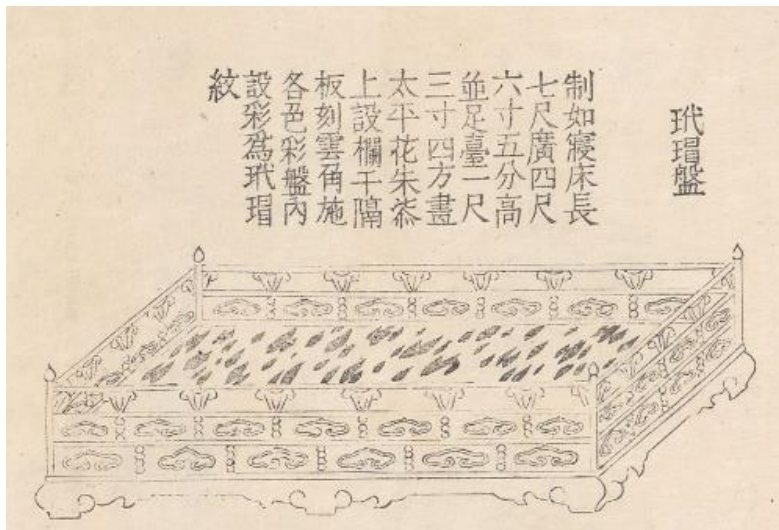 玳瑁盤
制如寢床長
七尺廣四尺
六寸五分高
並足臺一尺
三寸四方畫
太平花朱漆
上設欄干隔
板刻雲角施
各色彩盤內
設彩爲玳瑁
紋